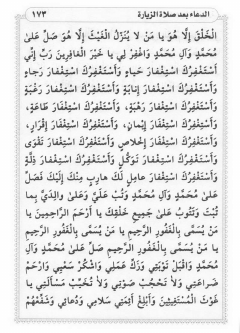 الدعاء بعد صلاة الزيارة ١٧٣
الْخَلْقَ إِلَّا هُوَ يَا مَنْ لَا يُنَزِّلُ الْغَيْثَ إِلَّا هُوَ صَلِّ عَلَىٰ
مُحَمَّدٍ وَآلِ مُحَمَّدٍ وَاغْفِرْ لِي يَا خَيْرَ الْغَافِرِينَ رَبِّ إِنِّي
أَسْتَغْفِرُكَ اسْتِغْفَارَ حَيَاءٍ وَأَسْتَغْفِرُكَ اسْتِغْفَارَ رَجَاءٍ
وَأَسْتَغْفِرُكَ اسْتِغْفَارَ إِنَابَةٍ وَأَسْتَغْفِرُكَ اسْتِغْفَارَ رَغْبَةٍ
وَأَسْتَغْفِرُكَ اسْتِغْفَارَ رَهْبَةٍ، وَأَسْتَغْفِرُكَ اسْتِغْفَارَ طَاعَةٍ،
وَأَسْتَغْفِرُكَ اسْتِغْفَارَ إِيمَانٍ، وَأَسْتَغْفِرُكَ اسْتِغْفَارَ إِقْرَارٍ،
وَأَسْتَغْفِرُكَ اسْتِغْفَارَ إِخْلَاصٍ وَأَسْتَغْفِرُكَ اسْتِغْفَارَ تَقْوَى
وَأَسْتَغْفِرُكَ اسْتِغْفَارَ تَوَكُّلٍ وَأَسْتَغْفِرُكَ اسْتِغْفَارَ ذِلَّةٍ
وَأَسْتَغْفِرُكَ اسْتِغْفَارَ عَامِلٍ لَكَ هَارِبٍ مِنْكَ إِلَيْكَ فَصَلِّ
عَلَىٰ مُحَمَّدٍ وَآلِ مُحَمَّدٍ وَتُبْ عَلَيَّ وَعَلَىٰ وَالِدَيَّ بِمَا
تُبْتَ وَتَتُوبُ عَلَىٰ جَمِيعِ خَلْقِكَ يَا أَرْحَمَ الرَّاحِمِينَ يَا
مَنْ يُسَمَّى بِالْغَفُورِ الرَّحِيمِ يَا مَنْ يُسَمَّى بِالْغَفُورِ الرَّحِيمِ
يَا مَنْ يُسَمَّى بِالْغَفُورِ الرَّحِيمِ صَلِّ عَلَىٰ مُحَمَّدٍ وَآلِ
مُحَمَّدٍ وَاقْبَلْ تَوْبَتِي وَزَكِّ عَمَلِي وَاشْكُرْ سَعْيِي وَارْحَمْ
ضَرَاعَتِي وَلَا تَحْجُبْ صَوْتِي وَلَا تُخَيِّبْ مَسْأَلَتِي يَا
غَوْثَ الْمُسْتَغِيثِينَ وَأَبْلِغْ أَئِمَّتِي سَلَامِي وَدُعَائِي وَشَفِّعْهُمْ